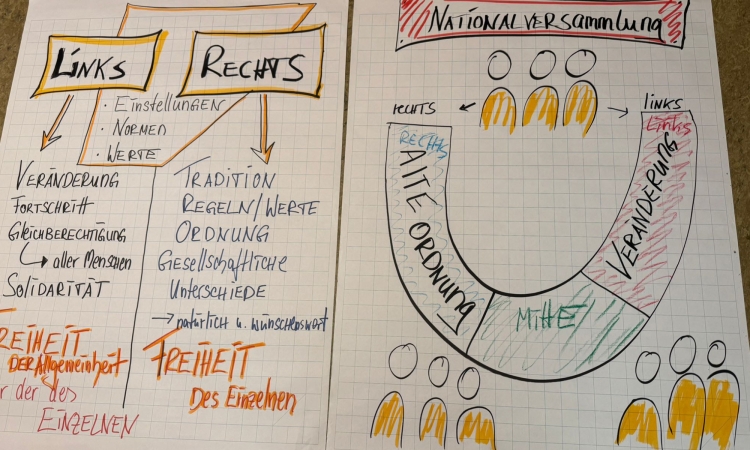 LINKS
RECHTS
· Einstellungen
· NORMEN
· WERTE
VERÄNDERUNG
FORTSCHRITT
GLEICHBERECHTIGUNG
→ aller Menschen
SOLIDARITÄT
REIHEIT
DER Allgemeinheit
r der des
EINZELNEN
TRADITION
REGELN/WERTE
ORDNUNG
GESELLSCHAFTLICHE
UNTERSCHIEDE
→ natürlich u. wünschenswert
FREIHEIT
Des Einzelnen
NATIONALVERSAMMLUNG
rechts ←
→ links
RECHTS
ALTE ORDNUNG
MITTE
LINKS
VERÄNDERUNG